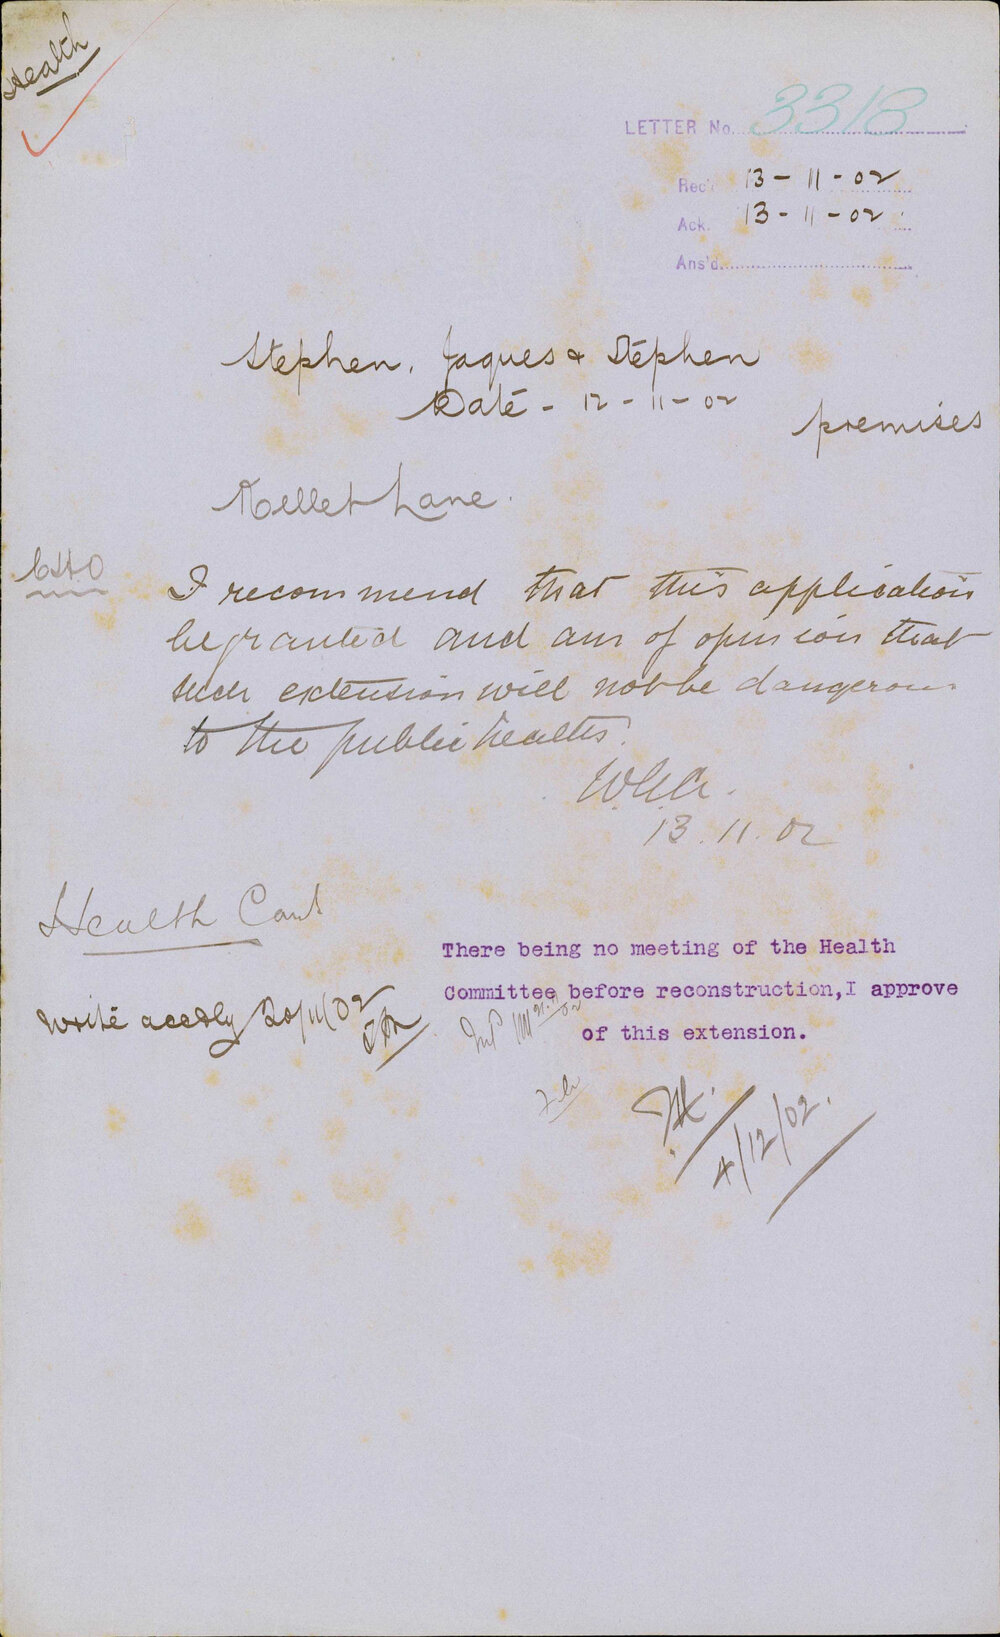 Health
LETTER No. 3318
Rec'd 13-11-02
Ack. 13-11-02
Ans'd.
Stephen, Jaques & Stephen
Date - 12-11-02
premises
Kellet Lane.
CHO
I recommend that this application
be granted and am of opinion that
such extension will not be dangerous
to the public health.
W.G.A.
13.11.02
Health
There being no meeting of the Health
Committee before reconstruction, I approve
of this extension.
Write accdly 20/11/02
4/12/02.